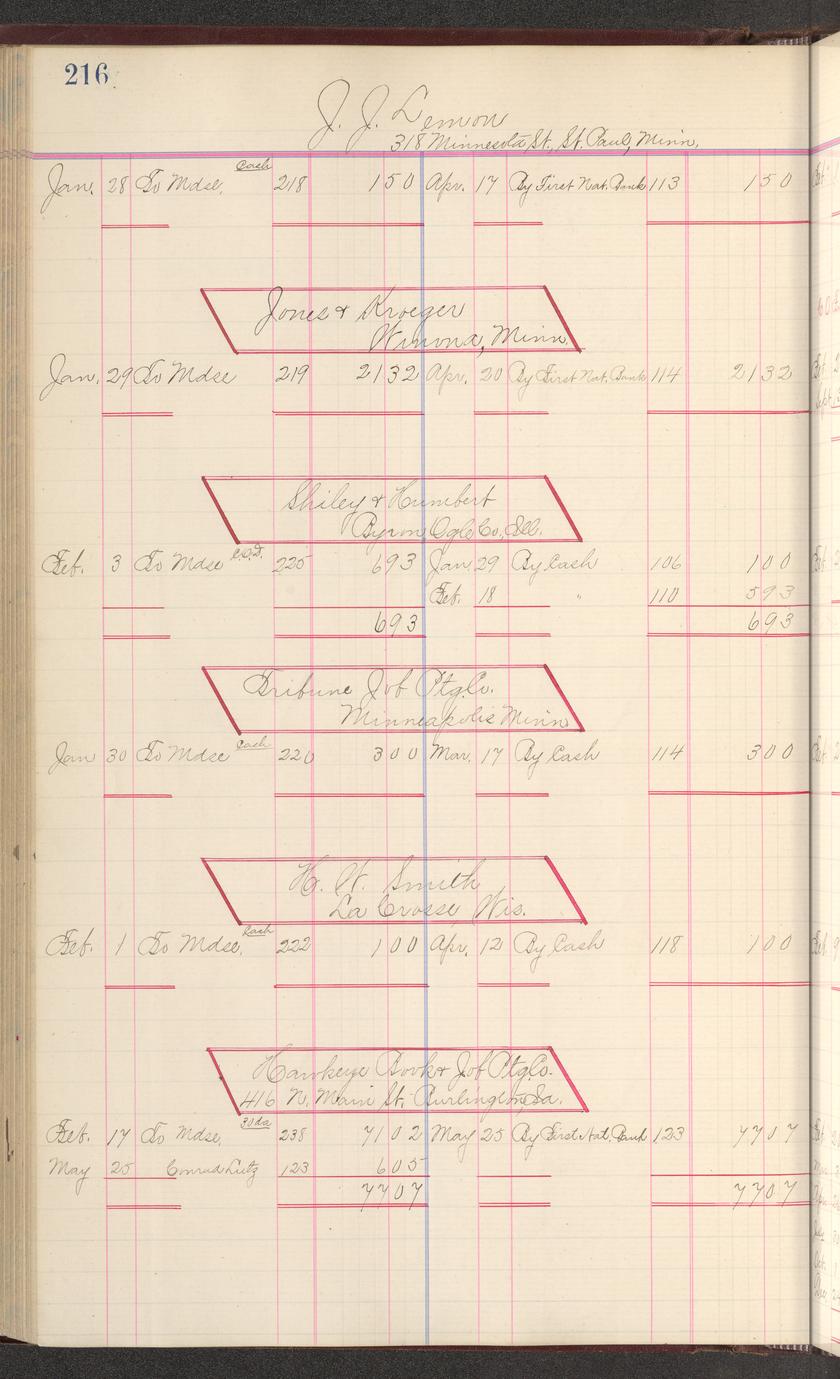 216
J. J. Lemon
318 Minnesota St., St. Paul, Minn.
Jan. 28 To Mdse. Cash 218 150 Apr. 17 By First Nat. Bank 113 150
Jones & Kroeger
Winona, Minn.
Jan. 29 To Mdse 219 2132 Apr. 20 By First Nat. Bank 114 2132
Shiley & Humbert
Byron Ogle Co., Ill.
Feb. 3 To Mdse C.O.D. 225 693 Jan 29 By Cash 106 100
Feb. 18 " 110 593
693 693
Tribune Job Ptg. Co.
Minneapolis Minn
Jan 30 To Mdse Cash 220 300 Mar. 17 By Cash 114 300
H. W. Smith
La Crosse, Wis.
Feb. 1 To Mdse, Cash 222 100 Apr. 12 By Cash 118 100
Hawkeye Book & Job Ptg. Co.
416 N. Main St. Burlington, Ia.
Feb. 17 To Mdse, 30 da 238 7102 May 25 By First Nat. Bank 123 7707
May 25 Conrad Lutz 123 605
7707 7707